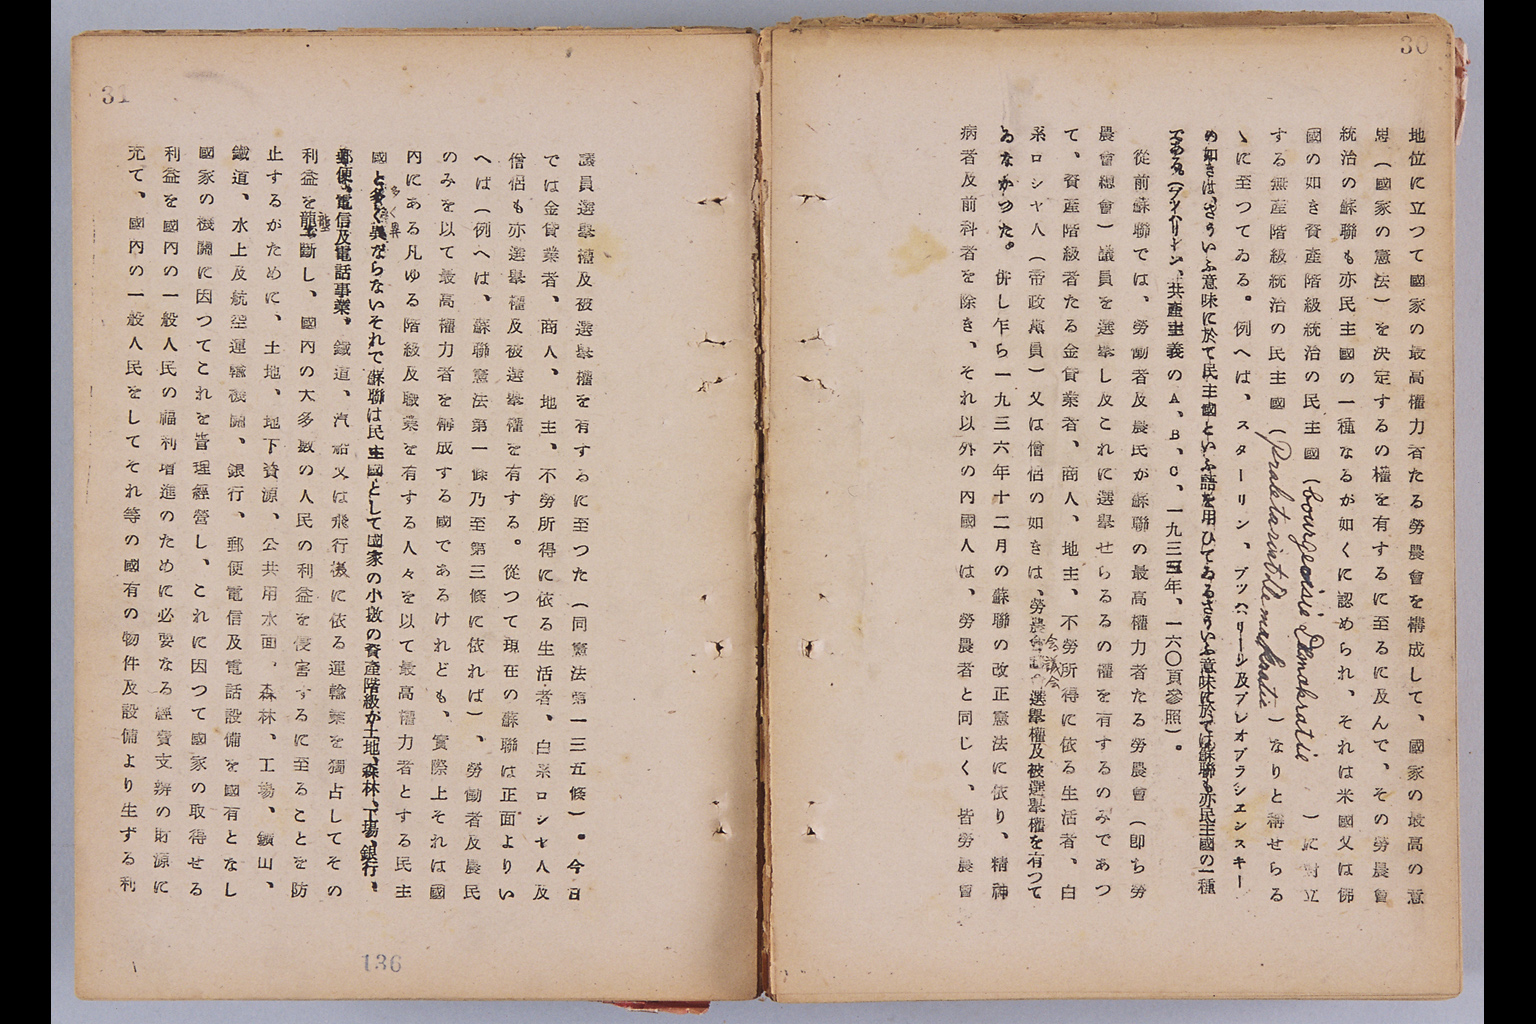 30
地位に立つて國家の最高權力者たる勞農會を構成して、國家の最高の意
思（國家の憲法）を決定するの權を有するに至るに及んで、その勞農會
統治の蘇聯も亦民主國の一種なるが如くに認められ、それは米國又は佛
國の如き資産階級統治の民主國（bourgeoisie Demokratie）に對立
する無産階級統治の民主國（Proletarierdemokratie）なりと稱せらる
ゝに至つてゐる。例へば、スターリン、ブツハーリーン及プレオブラシエンスキー
の如きは、さういふ意味に於て民主國といふ語を用ひてゐるさういふ意味に於ては蘇聯も亦民主國の一種
である。（ブハーリン、共産主義のA、B、C、一九三三年、一六〇頁參照）。
從前蘇聯では、勞働者及農民が蘇聯の最高權力者たる勞農會（卽ち勞
農會總會）議員を選擧し及これに選擧せらるるの權を有するのみであつ
て、資産階級者たる金貸業者、商人、地主、不勞所得に依る生活者、白
系ロシヤ人（帝政黨員）又は僧侶の如きは、勞農會議會の選擧權及被選擧權を有つて
ゐなかつた。併し乍ら一九三六年十二月の蘇聯の改正憲法に依り、精神
病者及前科者を除き、それ以外の內國人は、勞農者と同じく、皆勞農會
31
議員選擧權及被選擧權を有するに至つた（同憲法第一三五條）。今日
では金貸業者、商人、地主、不勞所得に依る生活者、白系ロシヤ人及
僧侶も亦選擧權及被選擧權を有する。從つて現在の蘇聯は正面よりい
へば（例へば、蘇聯憲法第一條乃至第三條に依れば）、勞働者及農民
のみを以て最高權力者を構成する國であるけれども、實際上それは國
內にある凡ゆる階級及職業を有する人々を以て最高權力者とする民主
國と多く異ならないそれで蘇聯は民主國として國家の小數の資產階級が土地、森林、工場、銀行、
郵便、電信及電話事業、鐵道、汽船又は飛行機に依る運輸業を獨占してその
利益を壟斷し、國內の大多數の人民の利益を侵害するに至ることを防
止するがために、土地、地下資源、公共用水面、森林、工場、鑛山、
鐵道、水上及航空運輸機關、銀行、郵便電信及電話設備を國有となし
國家の機關に因つてこれを管理經營し、これに因つて國家の取得せる
利益を國內の一般人民の福利增進のために必要なる經費支辨の財源に
充て、國內の一般人民をしてそれ等の國有の物件及設備より生ずる利
136